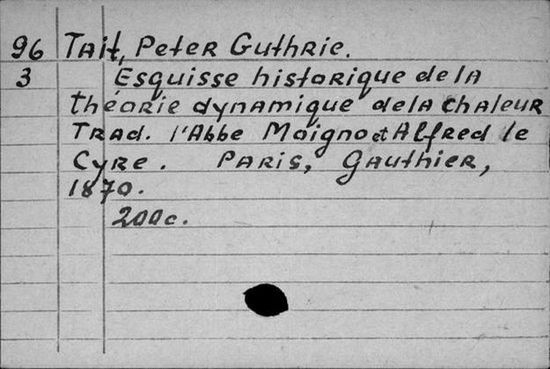 96 Tait, Peter Guthrie.
3 Esquisse historique de la
théorie dynamique dela chaleur
Trad. l'Abbe Moigno et Alfred le
Cyre. Paris, Gauthier,
1870.
200c.